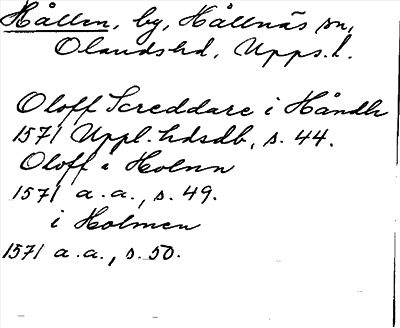 Hållen, by, Hållnäs sn,
Olandshd, Upps.l.
Oloff Screddare i Håndh
1571 Uppl. hdsdb, s. 44.
Oloff i Holnn
1571 a.a., s. 49.
i Holmen
1571 a.a., s. 50.